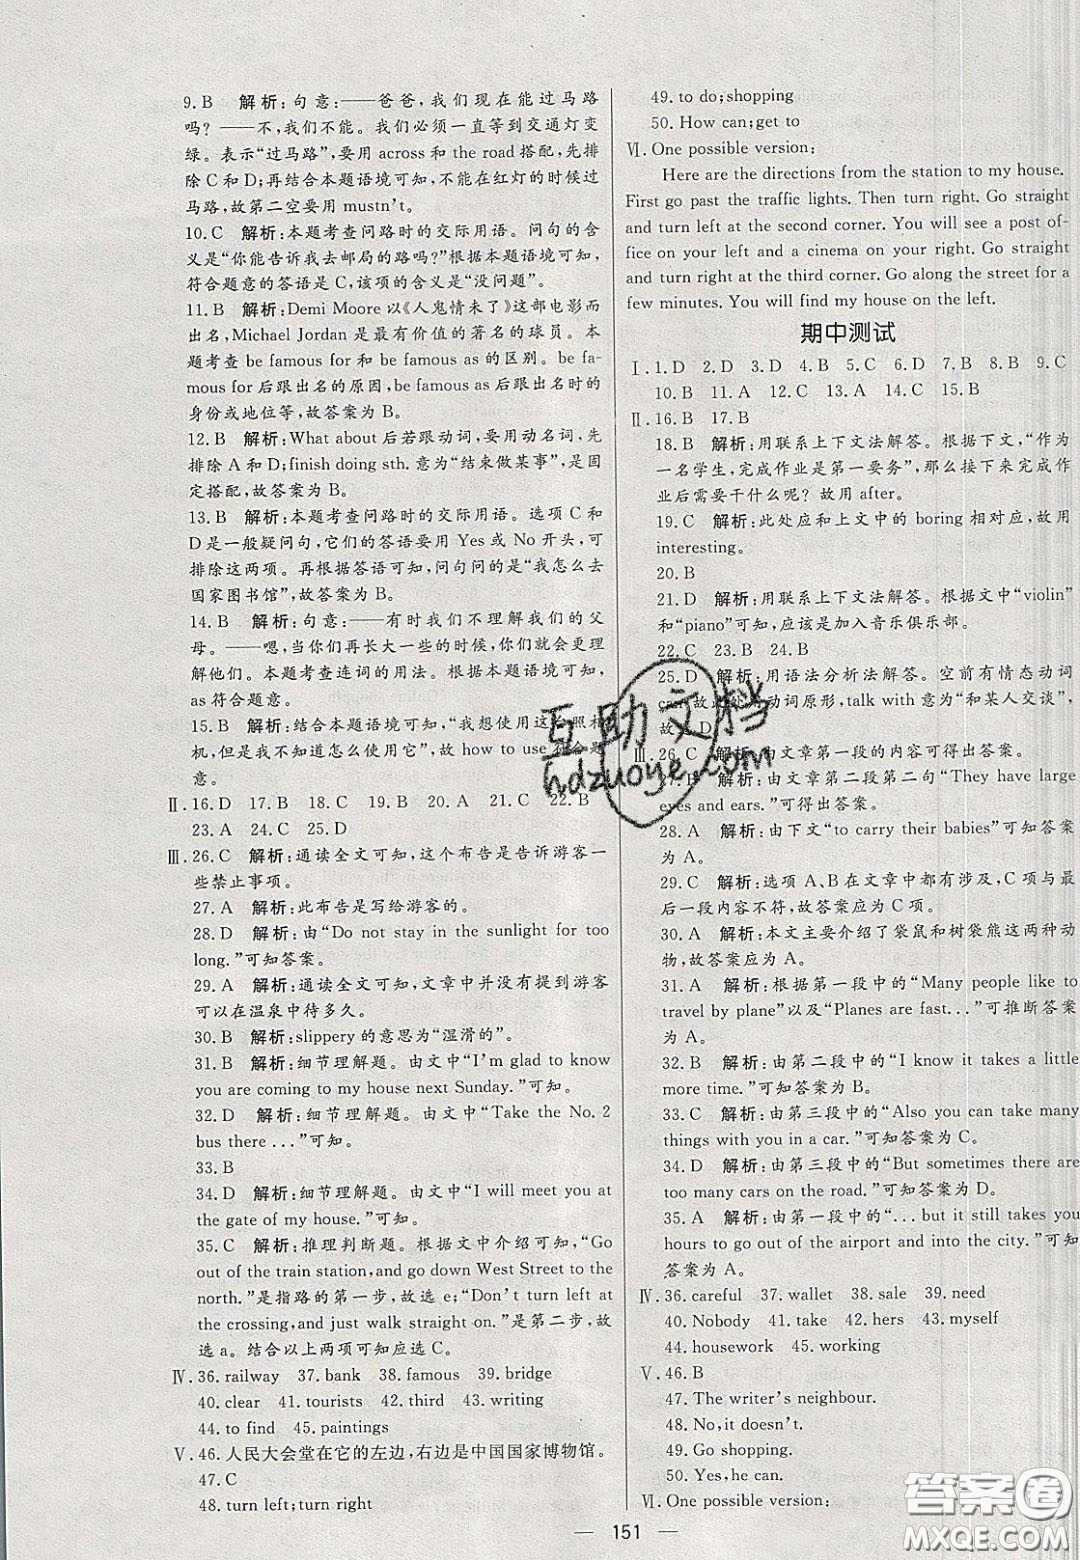 9. B 解析:句意:——爸爸,我们现在能过马路
吗?——不,我们不能。我们必须一直等到交通灯变
绿。表示“过马路”,要用 across 和 the road 搭配,先排
除 C 和 D;再结合本题语境可知,不能在红灯的时候过
马路,故第二空要用 mustn't。
10. C 解析:本题考查问路时的交际用语。问句的含
义是“你能告诉我去邮局的路吗?”根据本题语境可知,
符合题意的答语是 C,该项的含义是“没问题”。
11. B 解析:Demi Moore 以《人鬼情未了》这部电影而
出名,Michael Jordan 是最有价值的著名的球员。本
题考查 be famous for 和 be famous as 的区别。be fa-
mous for 后跟出名的原因,be famous as 后跟出名的
身份或地位等,故答案为 B。
12. B 解析:What about 后若跟动词,要用动名词,先
排除 A 和 D;finish doing sth. 意为“结束做某事”,是固
定搭配,故答案为 B。
13. B 解析:本题考查问路时的交际用语。选项 C 和
D 是一般疑问句,它们的答语要用 Yes 或 No 开头,可
排除这两项。再根据答语可知,问句问的是“我怎么去
国家图书馆”,故答案为 B。
14. B 解析:句意:——有时我们不理解我们的父
母。——嗯,当你们再长大一些的时候,你们会更理
解他们。本题考查连词的用法。根据本题语境可知,
as 符合题意。
15. B 解析:结合本题语境可知,“我想使用这个照相
机,但是我不知道怎么使用它”,故 how to use 符合题
意。
Ⅱ. 16. D 17. B 18. C 19. B 20. A 21. C 22. B
23. A 24. C 25. D
Ⅲ. 26. C 解析:通读全文可知,这个布告是告诉游客一
些禁止事项。
27. A 解析:此布告是写给游客的。
28. D 解析:由“Do not stay in the sunlight for too
long.”可知答案。
29. A 解析:通读全文可知,文章中并没有提到游客
可以在温泉中待多久。
30. B 解析:slippery 的意思为“湿滑的”。
31. B 解析:细节理解题。由文中“I'm glad to know
you are coming to my house next Sunday.”可知。
32. D 解析:细节理解题。由文中“Take the No. 2
bus there ...”可知。
33. B
34. D 解析:细节理解题。由文中“I will meet you at
the gate of my house.”可知。
35. C 解析:推理判断题。根据文中介绍可知,“Go
out of the train station, and go down West Street to the
north.”是指路的第一步,故选 e;“Don't turn left at
the crossing, and just walk straight on.”是第二步,故
选 a。结合以上两项可知应选 C。
Ⅳ. 36. railway 37. bank 38. famous 39. bridge
40. clear 41. tourists 42. third 43. writing
44. to find 45. paintings
Ⅴ. 46. 人民大会堂在它的左边,右边是中国国家博物馆。
47. C
48. turn left;turn right
49. to do;shopping
50. How can;get to
Ⅵ. One possible version:
Here are the directions from the station to my house.
First go past the traffic lights. Then turn right. Go straight
and turn left at the second corner. You will see a post of-
fice on your left and a cinema on your right. Go straight
and turn right at the third corner. Go along the street for a
few minutes. You will find my house on the left.
期中测试
Ⅰ. 1. D 2. D 3. D 4. B 5. C 6. D 7. B 8. B 9. C
10. B 11. A 12. C 13. A 14. C 15. B
Ⅱ. 16. B 17. B
18. B 解析:用联系上下文法解答。根据下文,“作为
一名学生,完成作业是第一要务”,那么在完成作
业后需要干什么呢? 故用 after。
19. C 解析:此处应和上文中的 boring 相对应,故用
interesting。
20. B
21. D 解析:用联系上下文法解答。根据文中“violin”
和“piano”可知,应该是加入音乐俱乐部。
22. C 23. B 24. B
25. D 解析:用语法分析法解答。空前有情态动词
can,故此处用动词原形,talk with 意为“和某人交谈”,
故选 D。
Ⅲ. 26. C 解析:由文章第一段的内容可得出答案。
27. B 解析:由文章第二段第二句“They have large
eyes and ears.”可得出答案。
28. A 解析:由下文“to carry their babies”可知答案
为 A。
29. C 解析:选项 A、B 在文章中都有涉及,C 项与最
后一段内容不符,故答案应为 C 项。
30. A 解析:本文主要介绍了袋鼠和树袋熊这两种动
物,故答案应为 A。
31. A 解析:根据第一段中的“Many people like to
travel by plane”以及“Planes are fast...”可推断答案
为 A。
32. B 解析:由第二段中的“I know it takes a little
more time.”可知答案为 B。
33. C 解析:由第三段中的“Also you can take many
things with you in a car.”可知答案为 C。
34. D 解析:由第三段中的“But sometimes there are
too many cars on the road.”可知答案为 D。
35. A 解析:由第一段中的“...but it still takes you
hours to go out of the airport and into the city.”可知
答案为 A。
Ⅳ. 36. careful 37. wallet 38. sale 39. need
40. Nobody 41. take 42. hers 43. myself
44. housework 45. working
Ⅴ. 46. B
47. The writer's neighbour.
48. No,it doesn't.
49. Go shopping.
50. Yes,he can.
Ⅵ. One possible version:
151
互助文档
hdzuoye.com
答案圈
MXQE.COM